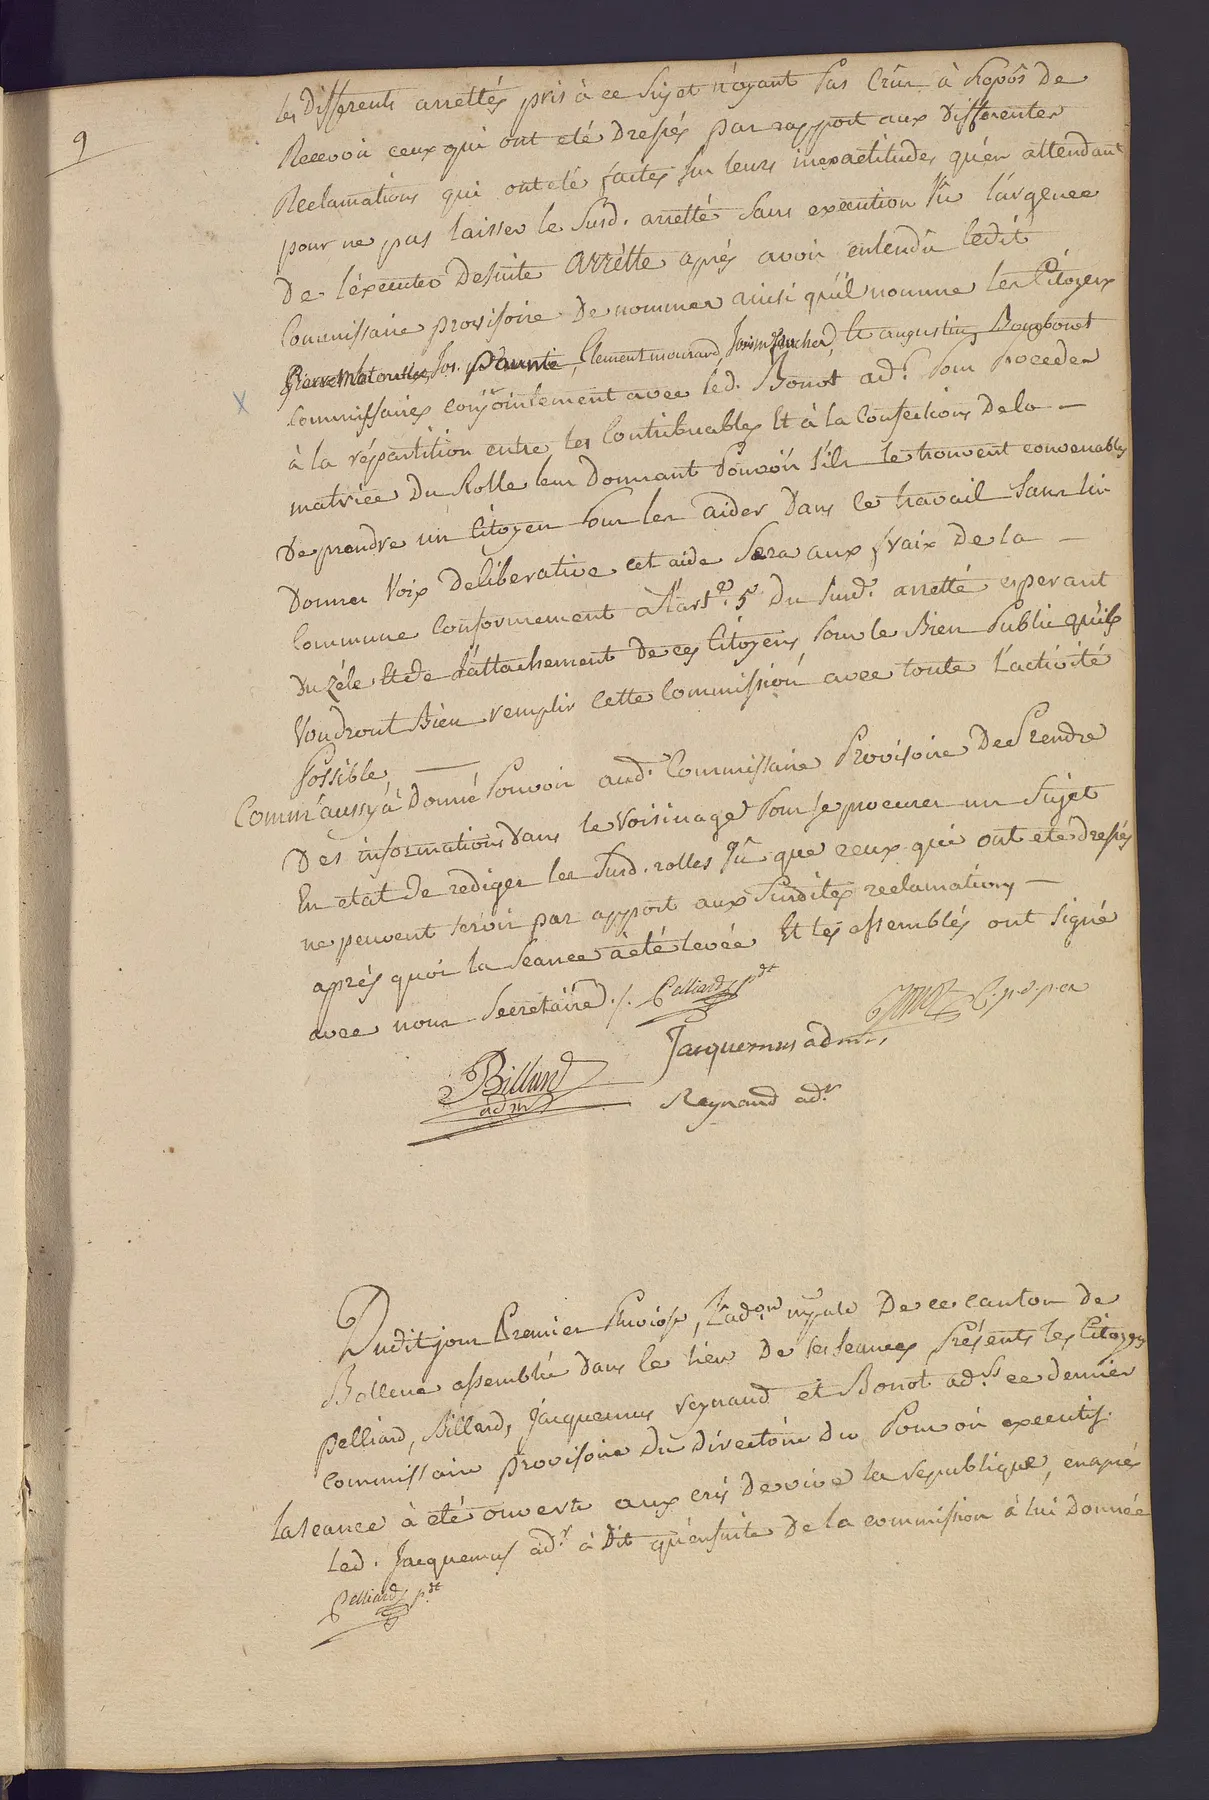 9
les Differents arrettés pris à ce Sujet n'ayant Pas Crûr à Propôs De
Recevoir ceux qui ont eté Dressés par rapport aux Differentes
Reclamations qui ont eté faites Sur leurs inexactitudes qu'en attendant
pour ne pas laisser le Susd. arretté Sans execution Vû L'urgence
De l'éxecuter Desuite Arrètte aprés avoir entendû ledit
Commissaire provisoire De nommer ainsi qu'il nomme les Citoyens
Pierre Jos. Clement mourard, et augustin
Commissaires conjointement avec led. Bonot ad.r Pour Proceder
à la répartition entre les Contribuables Et à la Confections De la —
matrice Du Rolle leur Donnant Pouvoir s'ils le trouvent convenables
De prendre un Citoyen Pour les aider Dans le travail Sans lui
Donner Voix Deliberative cet aide Sera aux fraix De la —
Commune Conformement a l'art.e 5e Du Susd. arretté esperant
Du zéle Et de L'attachement De ces Citoyens Pour le Bien Public qu'ils
Voudront Bien remplir Cette Commission avec toute L'activité
Possible —
Comm'aussy à Donné Pouvoir aud. Commissaire Provisoire De Prendre
Des informations Dans le Voisinage Pour Se procurer un Sujet
En etat De rediger les Susd. rolles Vû que ceux qui ont eté dressés
ne peuvent servir par apport aux Susdites reclamations —
aprés quoi la Seance à eté levée Et les assemblés ont signé
avec nous Secretaire ./. Pelliard p.dt
Bonot C. p. e. p. a
Jacquemus adm.
Billard
adm
Reynaud ad.r
Dudit jour Premier Pluviose, L'ad.on mpale De ce canton de
Bollene assemblée Dans le lieu De ses Seances Présents les Citoyens
Pelliard, Billard, Jacquemus reynaud et Bonot ad.rs ce dernier
Commissaire provisoire Du Directoire Du Pouvoir executif.
La Seance à eté ouverte aux cris De vive la republique, en aprés
Led. Jacquemus ad.r à Dit qu'ensuite De la commission à lui donnée
Pelliard p.dt